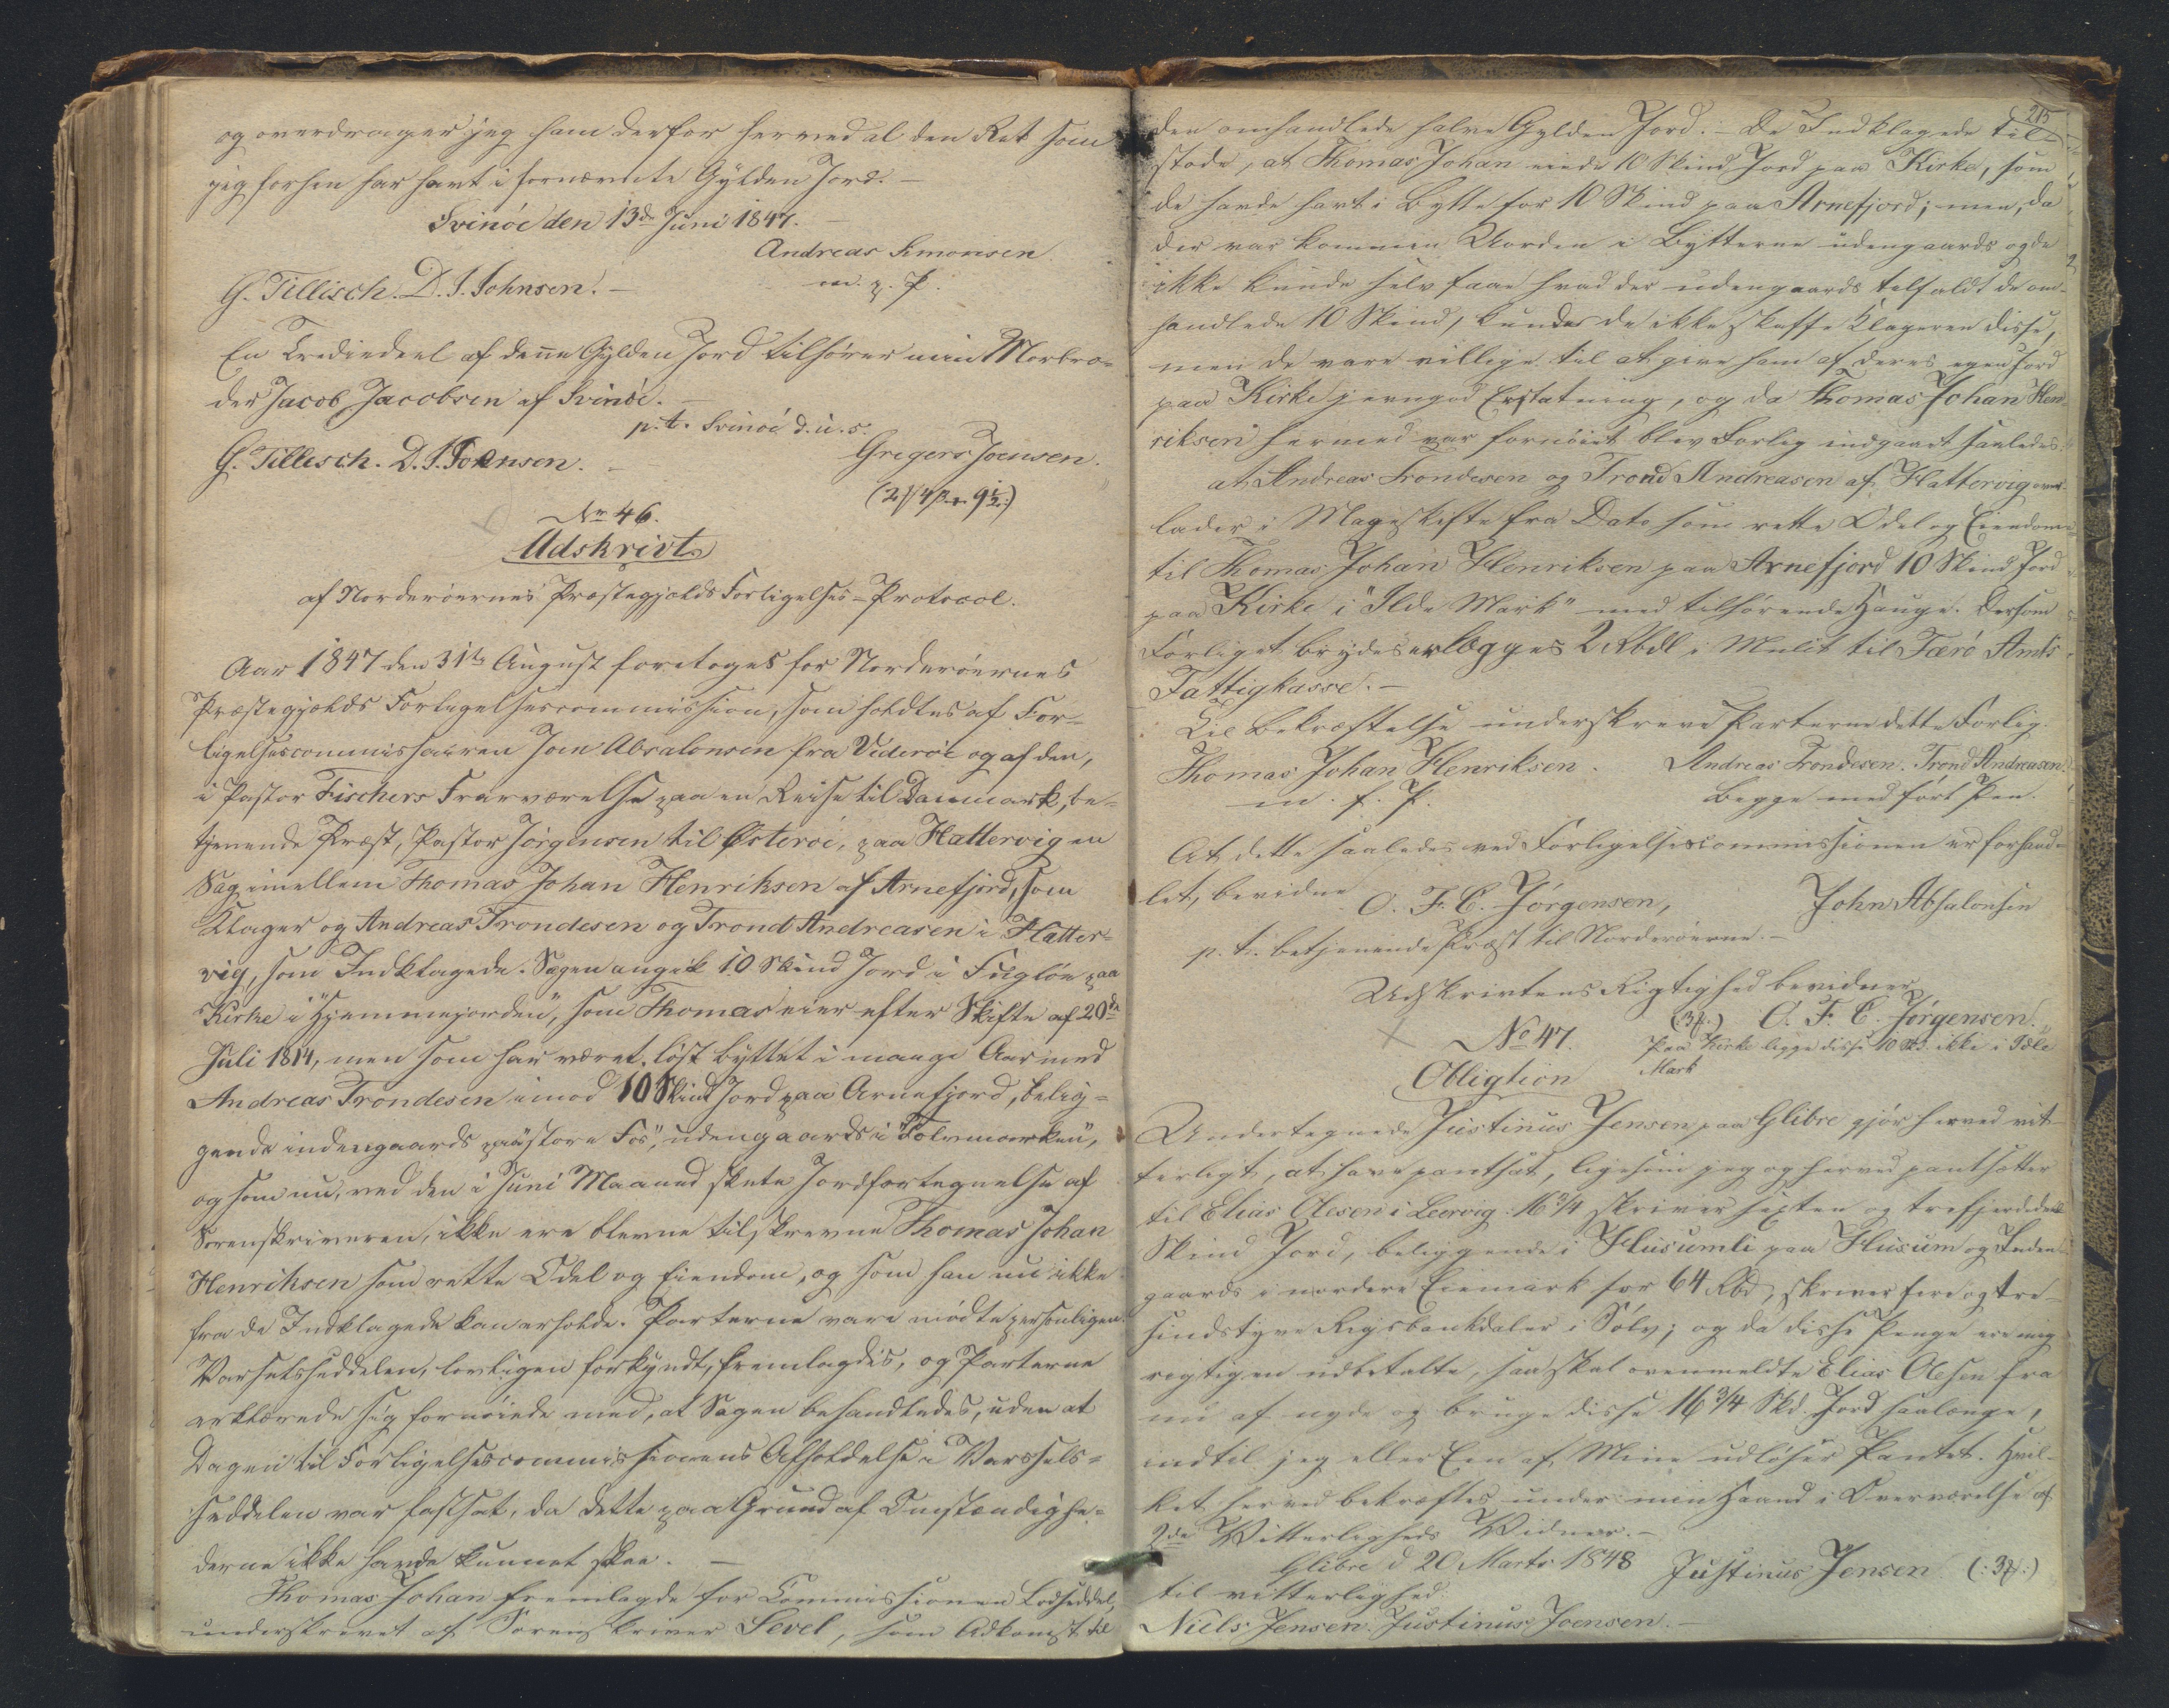 og overdrager jeg ham derfor herved al den Ret som
jeg forhen har havt i fornævnte Gylden Jord. –
Svinöe den 13de Juni 1847. –
Andreas Simonsen
m. p. P.
G. Tillisch. D. J. Johnsen. –
En Trediedeel af denne Gylden Jord tilhører min Morbro-
der Jacob Jacobsen af Svinöe. –
p. t. Svinöe d. u. s.
G. Tillisch. D. J. Johnsen. –
Gregers Joensen.
No 46.
Udskrivt
af Norderöernes Præstegjelds Forligelses-Protocol.
Aar 1847 den 31te August foretoges for Norderöernes
Præstegjelds Forligelsescommission, som holdtes af For-
ligelsescommissairen Joen Absalonsen fra Videröe og af den,
i Pastor Fischers Fraværelse paa en Reise til Danmark, be-
tjenende Præst, Pastor Jörgensen til Österöe, paa Hattervig en
Sag imellem Thomas Johan Henriksen af Arnefjord, som
Klager og Andreas Trondesen og Trond Andreasen i Hatter-
vig, som Indklagede. Sagen angik 10 Skind Jord i Fuglöe paa
Kirke i "Hjemmejorden", som Thomas eier efter Skifte af 20de
Juli 1814, men som har været löst byttet i mange Aar med
Andreas Trondesen imod 10 Skind Jord paa Arnefjord, belig-
gende indengaards paa "store Fos", udengaards i "Tolvmarken",
og som nu, ved den i Juni Maaned skete Jordfortegnelse af
Sorenskriveren, ikke ere blevne tilskrevne Thomas Johan
Henriksen som rette Odel og Eiendom, og som han nu ikke
fra de Indklagede kan erholde. Parterne vare mödte personligen.
Varselsseddelen, lovligen forkyndt, fremlagdes, og Parterne
erklærede sig fornöiede med, at Sagen behandledes, uden at
Dagen til Forligelsescommissionens Afholdelse i Varsels-
seddelen var fastsat, da dette paa Grund af Omstændighe-
derne ikke havde kunnet skee. –
Thomas Johan fremlagde for Commissionen Lodseddel,
underskrevet af Sorenskriver Level, som Adkomst til
215
den omhandlede halve Gylden Jord. – De Indklagede til-
stode, at Thomas Johan eiede 10 Skind Jord paa Kirke, som
de havde havt i Bytte for 10 Skind paa Arnefjord; men, da
der var kommen Uorden i Bytterne udengaards og de
ikke kunde selv faae hvad der udengaards tilfaldt de om-
handlede 10 Skind, kunde de ikke skaffe Klageren disse,
men de vare villige til at give ham af deres egen Jord
paa Kirke jevngod Erstatning, og da Thomas Johan Hen-
riksen hermed var fornöiet blev Forlig indgaaet saaledes:
at Andreas Trondesen og Trond Andreasen af Hattervig over-
lader i Mageskifte fra Dato som rette Odel og Eiendom
til Thomas Johan Henriksen paa Arnefjord 10 Skind Jord
paa Kirke i "Ilde Mark" med tilhörende Hauge. Dersom
Forliget brydes erlægges 2 Rbdl i Mulct til Færö Amts
Fattigkasse. –
Til Bekræftelse underskreve Parterne dette Forlig.
Thomas Johan Henriksen.
m. f. P.
Andreas Trondesen. Trond Andreasen.
Begge med fört Pen.
At dette saaledes ved Forligelsescommissionen er forhand-
let, bevidne
O. F. C. Jörgensen,
John Absalonsen
p. t. betjenende Præst til Norderöerne. –
Udskrivtens Rigtighed bevidner
O. F. C. Jörgensen.
No 47.
Paa Kirke ligge disse 10 Sk. ikke i Ilde
Mark
Obligtion
Undertegnede Justinus Jensen paa Glibre gjör herved vit-
terligt, at have pantsat, ligesom jeg og herved pantsætter
til Elias Olesen i Leervig 16 3/4 skriver sexten og trefjerdedeel
Skind Jord, beliggende i Husumli paa Husum og Inden-
gaards i nordere Eiemark for 64 Rbd, skriver fire og tre-
sindstyve Rigsbankdaler i Sölv; og da disse Penge ere mig
rigtigen udbetalte, saa skal ovenmeldte Elias Olesen fra
nu af nyde og bruge disse 16 3/4 Skd. Jord saalænge,
indtil jeg eller Een af Mine udlöser Pantet. Hvil-
ket herved bekræftes under min Haand i Overværelse af
2de Vitterligheds Vidner. –
Glibre d 20 Marts 1848
Justinus Jensen
til vitterlighed:
Niels Jensen. Justinus Joensen. –